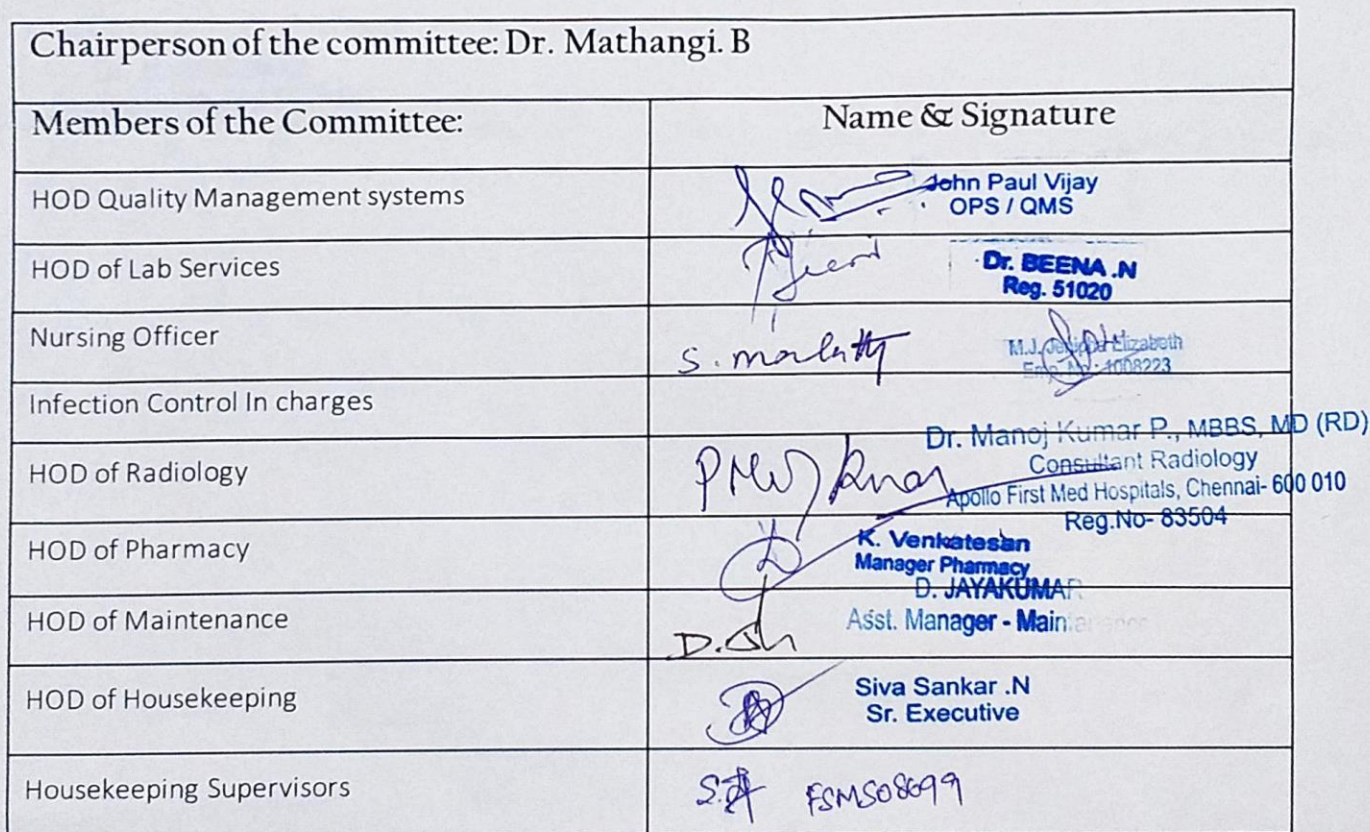 Chairperson of the committee: Dr. Mathangi. B
Members of the Committee:
Name & Signature
HOD Quality Management systems
John Paul Vijay
OPS / QMS
HOD of Lab Services
Dr. BEENA .N
Reg. 51020
Nursing Officer
S. malathy
M.J. Elizabeth
Emp No: 1008223
Infection Control In charges
HOD of Radiology
Dr. Manoj Kumar P., MBBS, MD (RD)
Consultant Radiology
Apollo First Med Hospitals, Chennai- 600 010
Reg.No- 83504
HOD of Pharmacy
K. Venkatesan
Manager Pharmacy
HOD of Maintenance
D. JAYAKUMAR
Asst. Manager - Maintenance
HOD of Housekeeping
Siva Sankar .N
Sr. Executive
Housekeeping Supervisors
FSMS08699